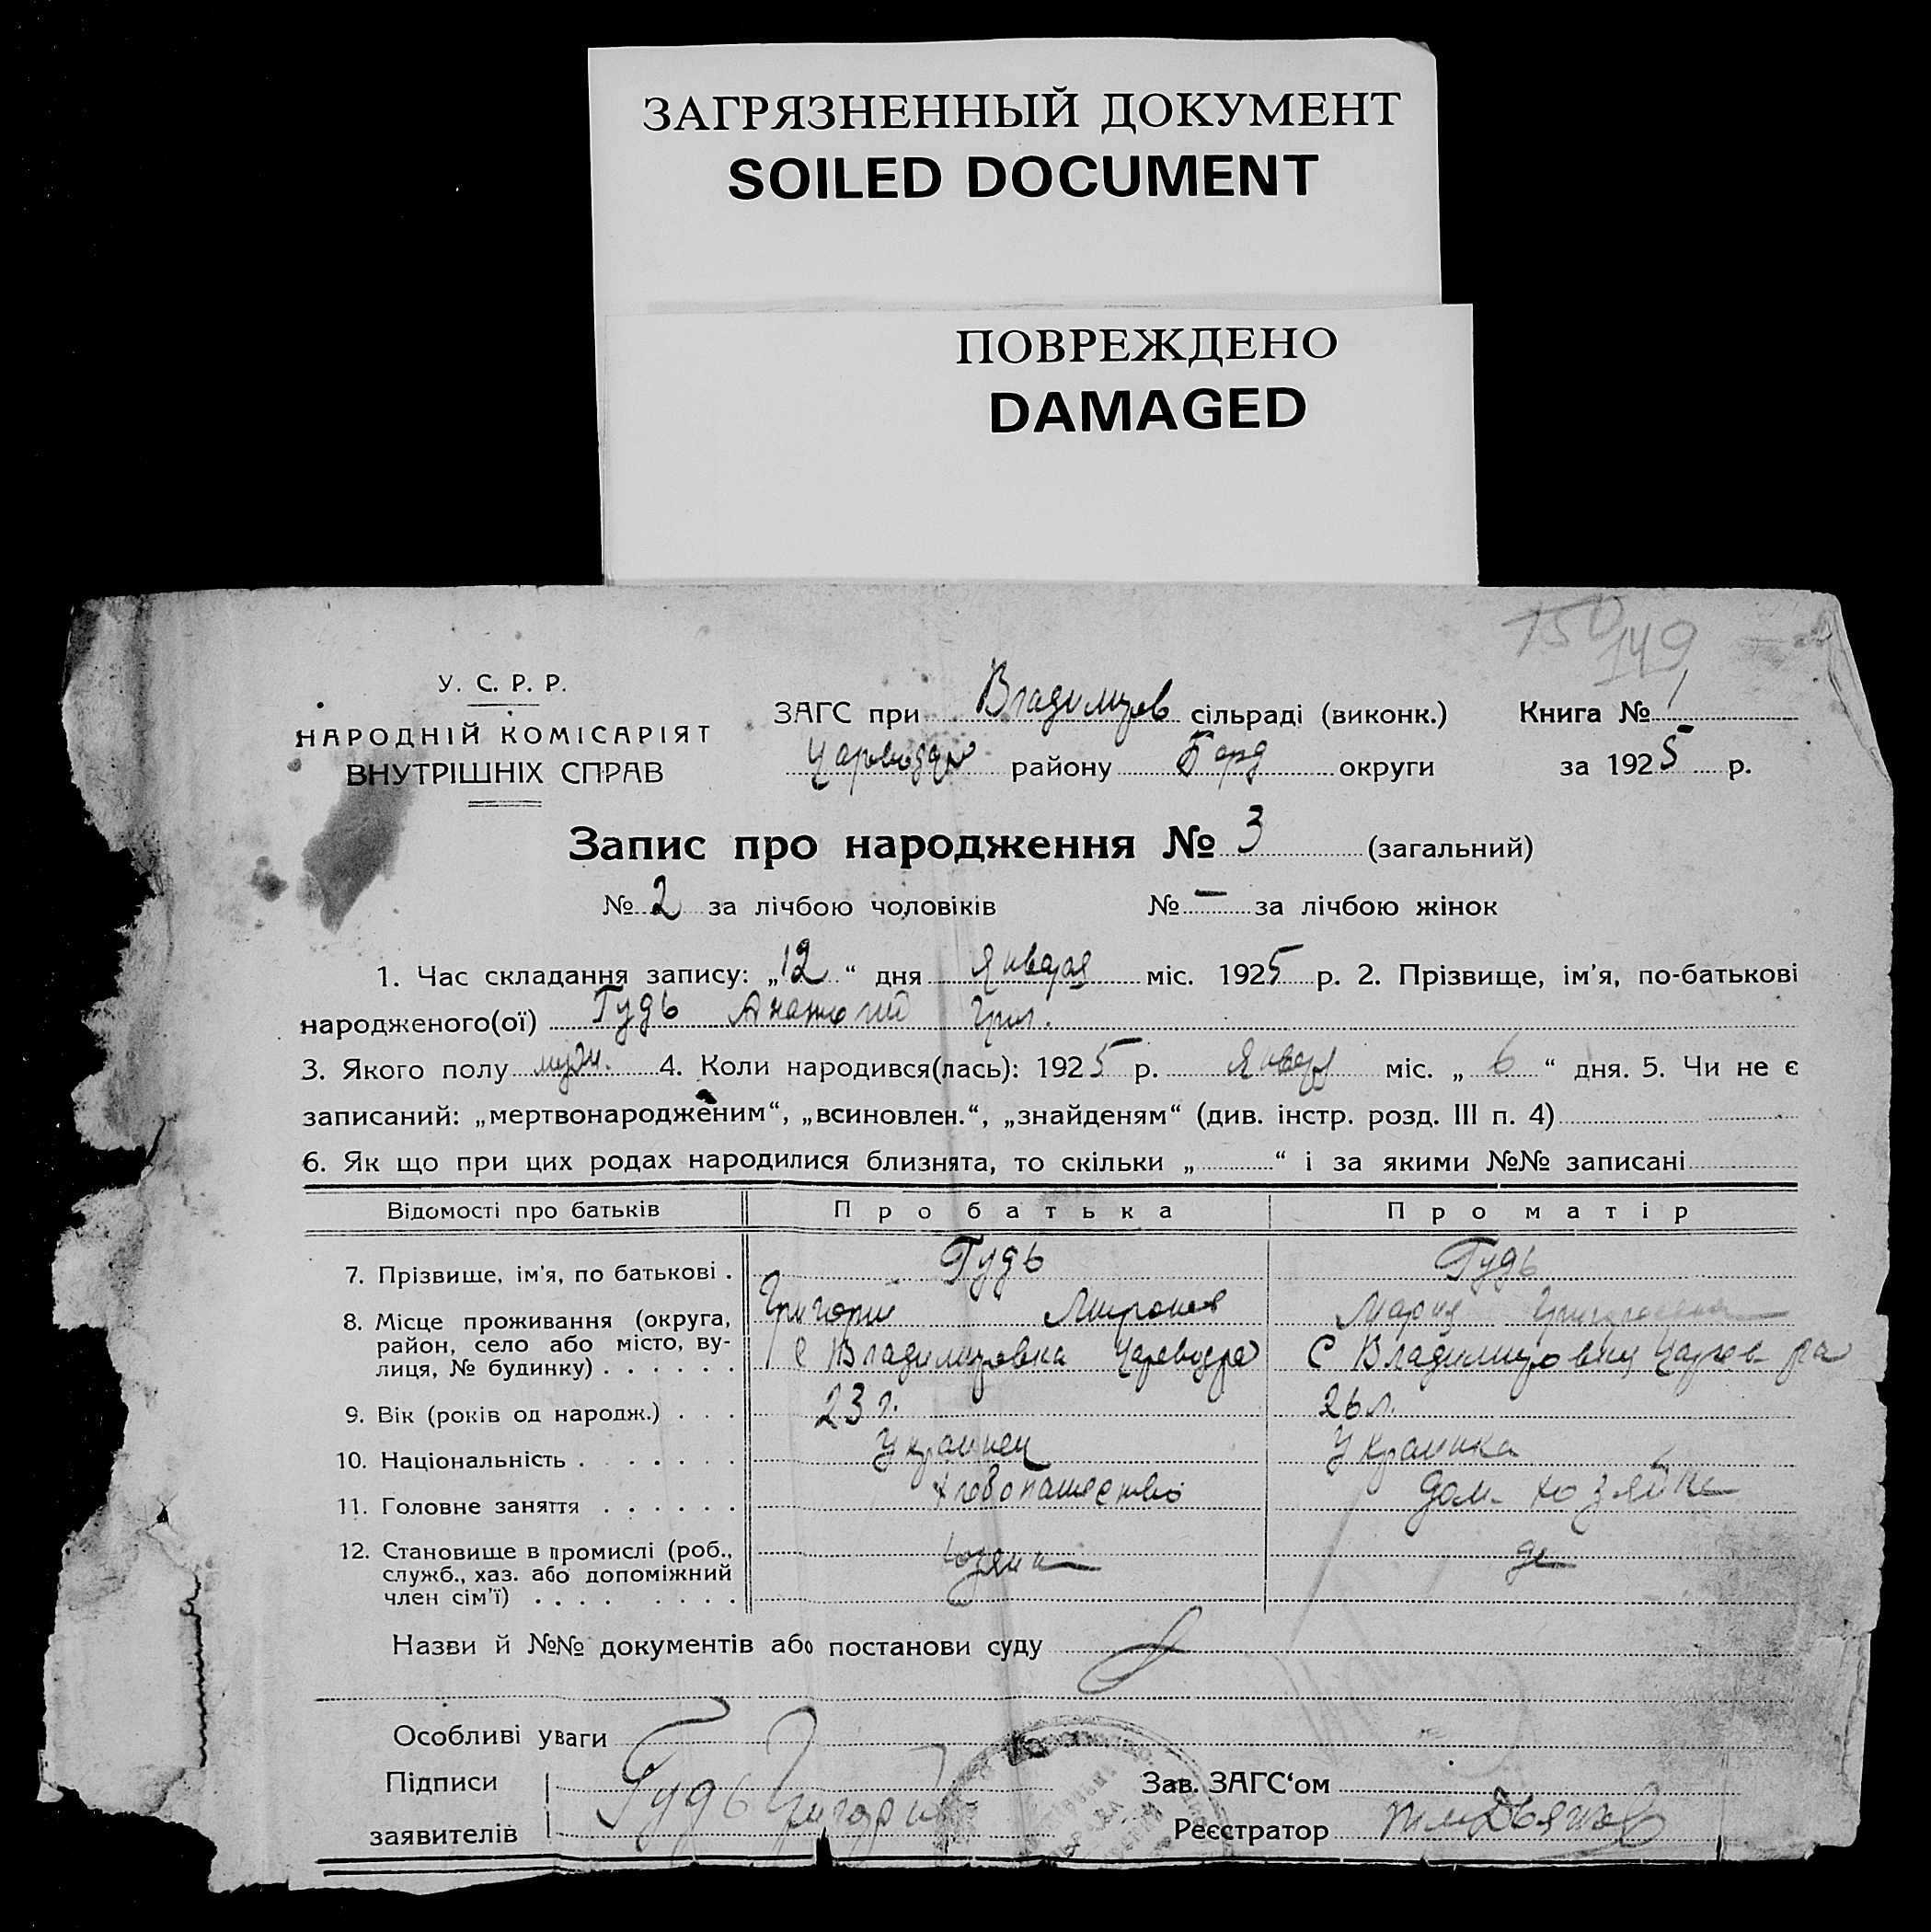 ЗАГРЯЗНЕННЫЙ ДОКУМЕНТ
SOILED DOCUMENT
ПОВРЕЖДЕНО
DAMAGED
150 149
У. С. Р. Р.
НАРОДНІЙ КОМІСАРІЯТ
ВНУТРІШНІХ СПРАВ
ЗАГС при Владимиров сільраді (виконк.) Книга № 1
району округи за 1925 р.
Запис про народження № 3 (загальний)
№ 2 за лічбою чоловіків № — за лічбою жінок
1. Час складання запису: „12“ дня Января міс. 1925 р. 2. Прізвище, ім'я, по-батькові
народженого(ої) Гудь Анатолий Григ.
3. Якого полу муж. 4. Коли народився(лась): 1925 р. Января міс. „6“ дня. 5. Чи не є
записаний: „мертвонародженим“, „всиновлен.“, „знайденям“ (див. інстр. розд. III п. 4)
6. Як що при цих родах народилися близнята, то скільки „ “ і за якими №№ записані
Відомості про батьків Про батька Про матір
7. Прізвище, ім'я, по батькові . Гудь Гудь
Григорий Миронов Мария Григорьевна
8. Місце проживання (округа,
район, село або місто, ву-
лиця, № будинку) . . . . . . С Владимировка С Владимировка
9. Вік (років од народж.) . . . 23 г. 26 л.
10. Національність . . . . . . . Украинец Украинка
11. Головне заняття . . . . . . Хлебопашество дом. хозяйка
12. Становище в промислі (роб.,
служб., хаз. або допоміжний
член сім'ї) . . . . . . . . хозяин
Назви й №№ документів або постанови суду
Особливі уваги
Підписи
заявителів Гудь Григорий
Зав. ЗАГС‘ом
Реєстратор